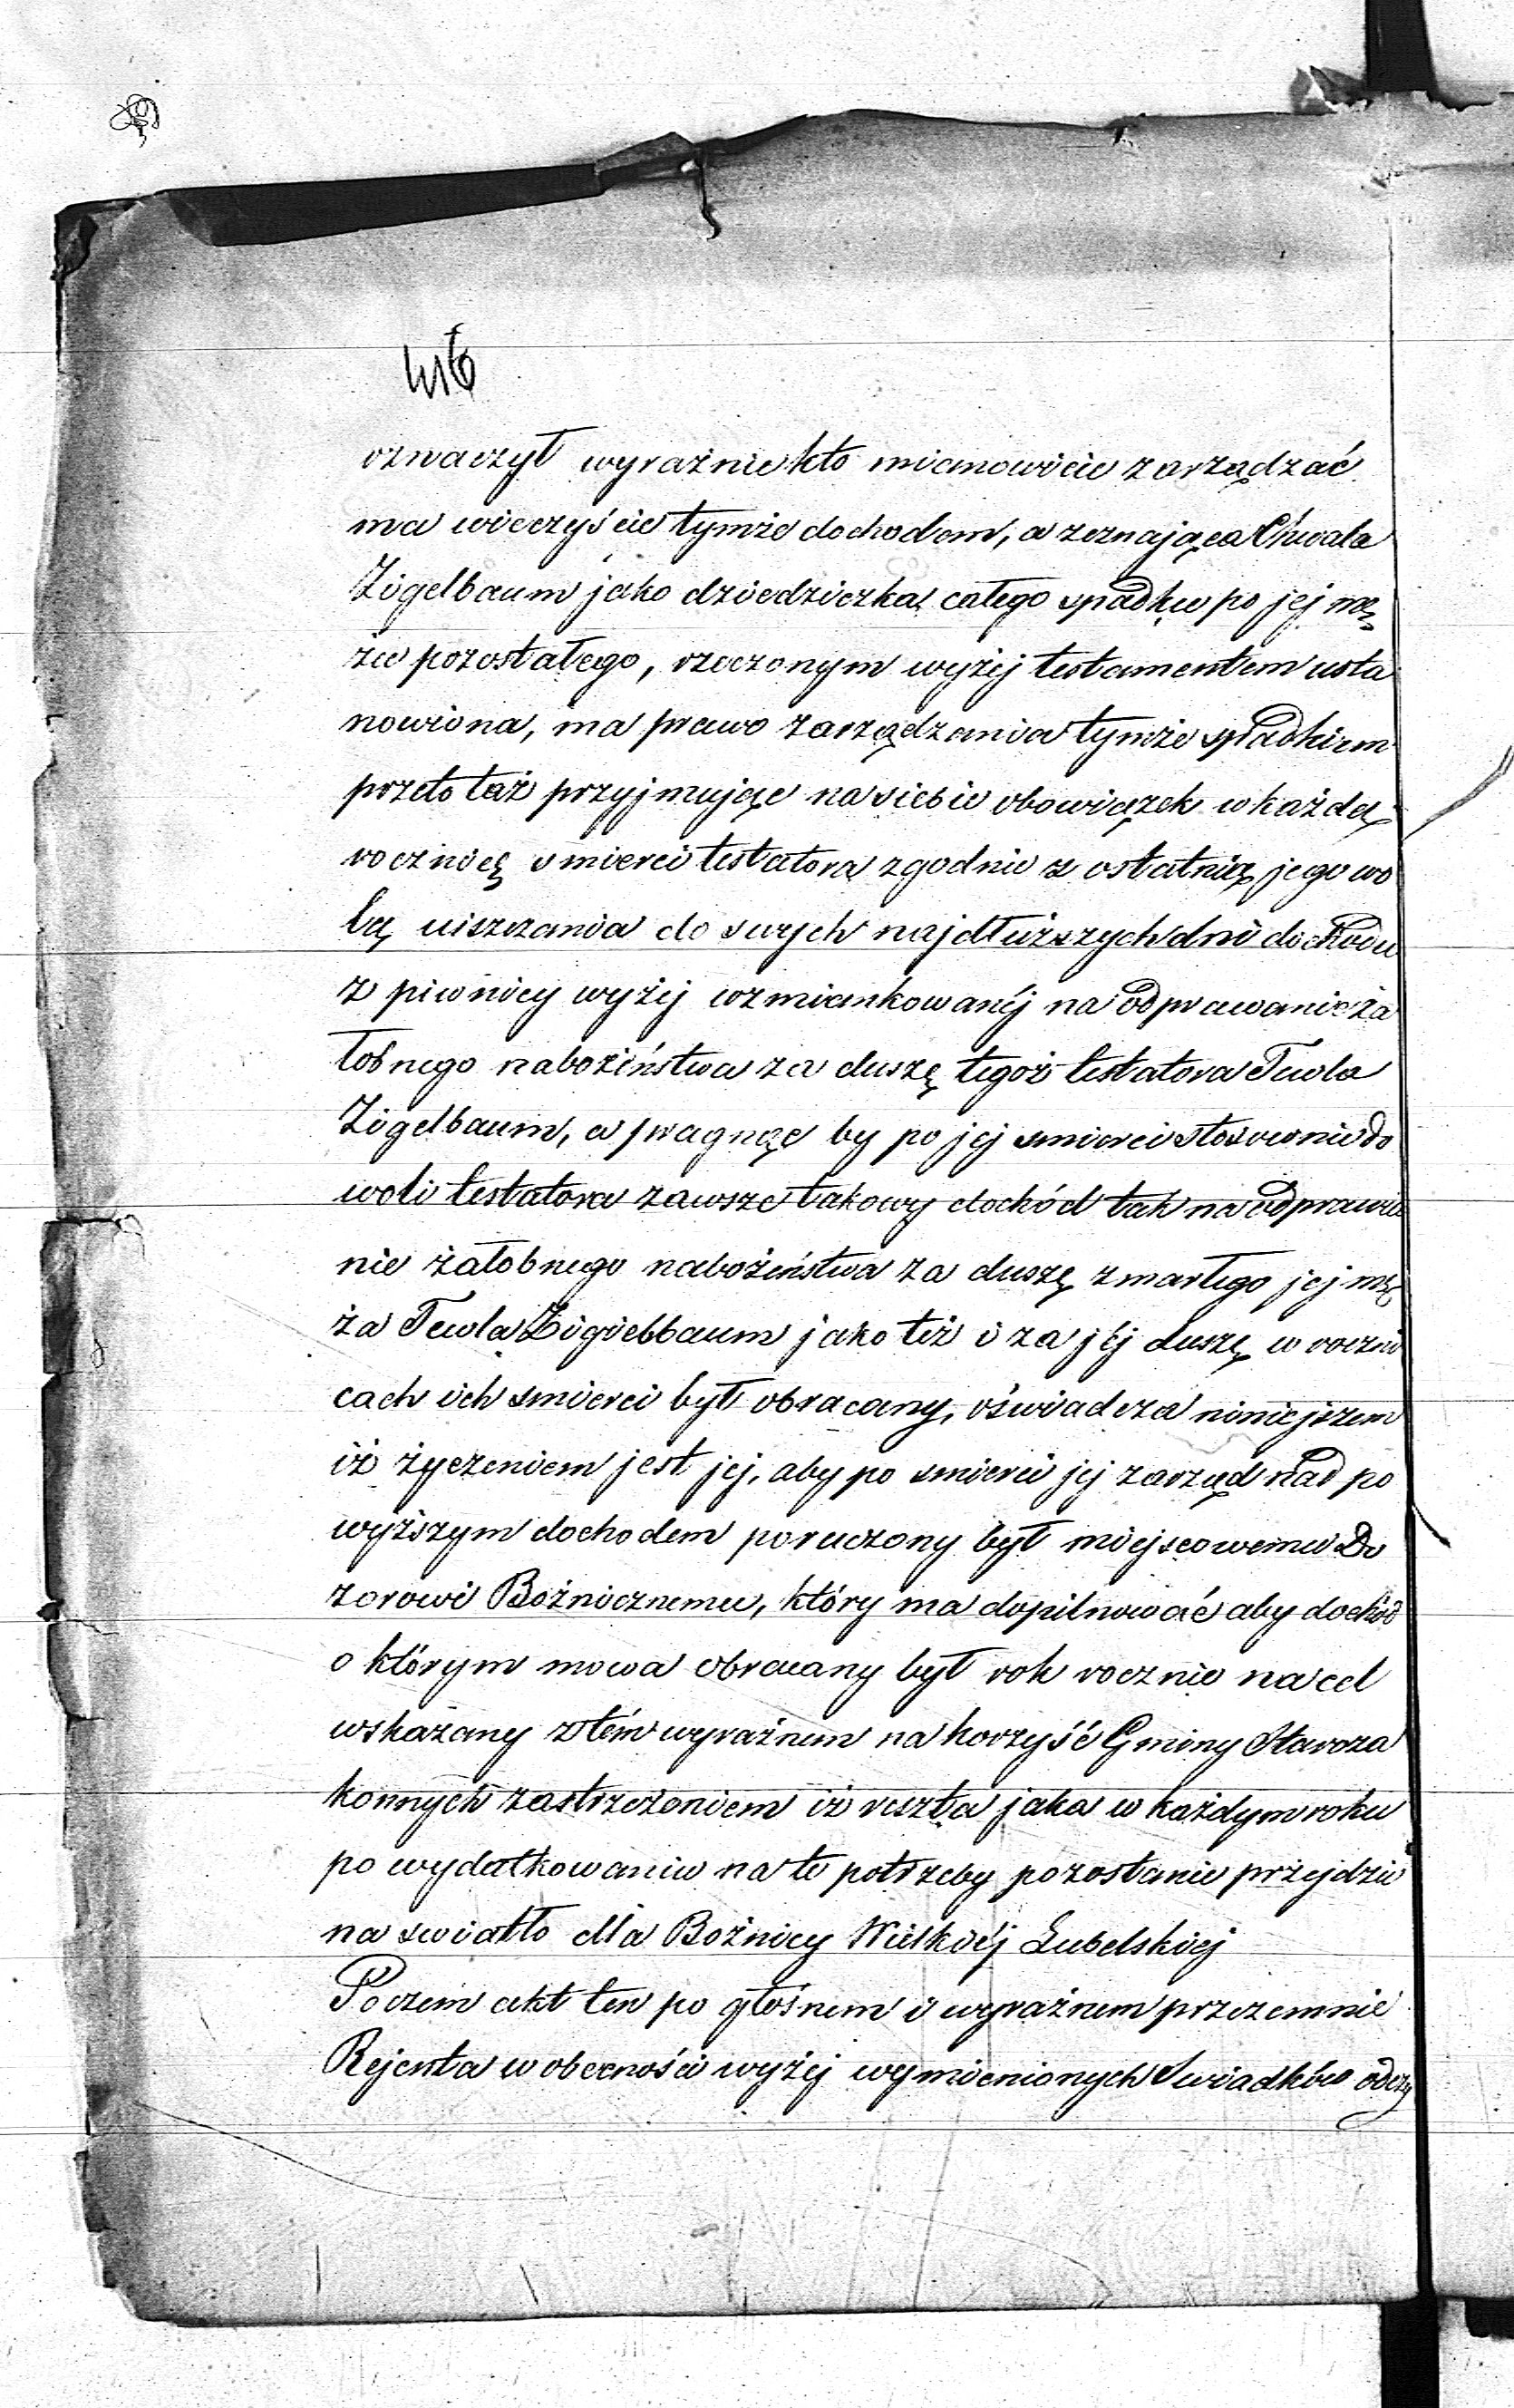 oznaczył wyraźnie kto mianowicie zarządzać
ma wieczyście tymże dochodem, a zeznająca Chwala
Zigelbaum jako dziedziczka całego spadku po jej mę
żu pozostałego, rzeczonym wyżej testamentem usta
nowiona, ma prawo zarządzania tymże spadkiem
przeto taż przyjmując na siebie obowiązek w każdą
rocznicę smierci testatora zgodnie z ostatnią jego wo
lą uiszczania do swych najdłuższych dni dochodu
z piwnicy wyżej wzmiankowanéj na odprawanie ża
łobnego nabożeństwa za duszę tegoż testatora Tewla
Zigelbaum, a pragnąc by po jej smierci stosownie do
woli testatora zawsze takowy dochód tak na odprawia
nie żałobnego nabożeństwa za duszę zmarłego jej mę
ża Tewla Zigielbaum jako też i za jéj duszę w roczni
cach ich smierci był obracany, oświadcza niniejszem
iż życzeniem jest jej, aby po smierci jej zarząd nad po
wyższym dochodem poruczony był miejscowemu Do
zorowi Bożnicznemu, który ma dopilnować aby dochód
o którym mowa obracany był rok rocznie na cel
wskazany z tém wyraźnem na korzyść Gminy Staroza
konnych zastrzeżeniem iż reszta jaka w każdym roku
po wydatkowaniu na te potrzeby pozostanie przejdzie
na swiatło dla Bożnicy Wielkiéj Lubelskiej
Poczem akt ten po głośnem i wyraźnem przezemnie
Rejenta w obecności wyżej wymienionych Swiadków odczy